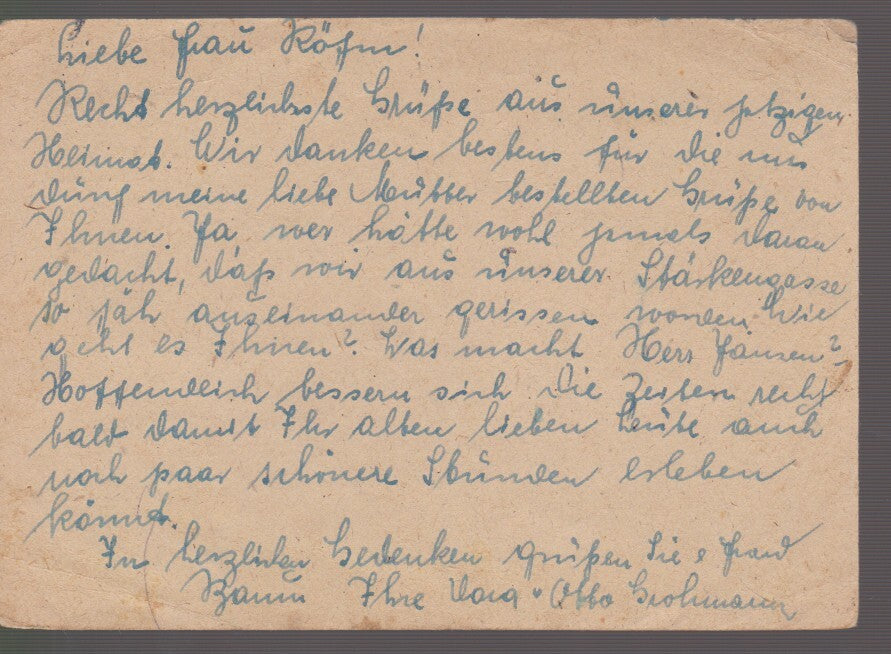 Liebe Frau Köhn!
Recht herzlichste Grüße aus unserer jetzigen
Heimat. Wir danken bestens für die uns
durch meine liebe Mutter bestellten Grüße von
Ihnen. Ja, wer hätte wohl jemals daran
gedacht, daß wir aus unserer Stärkengasse
so jäh auseinander gerissen worden. Wie
geht es Ihnen? Was macht Herr Jansen?
Hoffendlich bessern sich die Zeiten recht
bald damit Ihr alten lieben Leute auch
noch paar schönere Stunden erleben
könnt.
In herzlichen Gedenken grüßen Sie Frau
Ihre Otto Grohmann